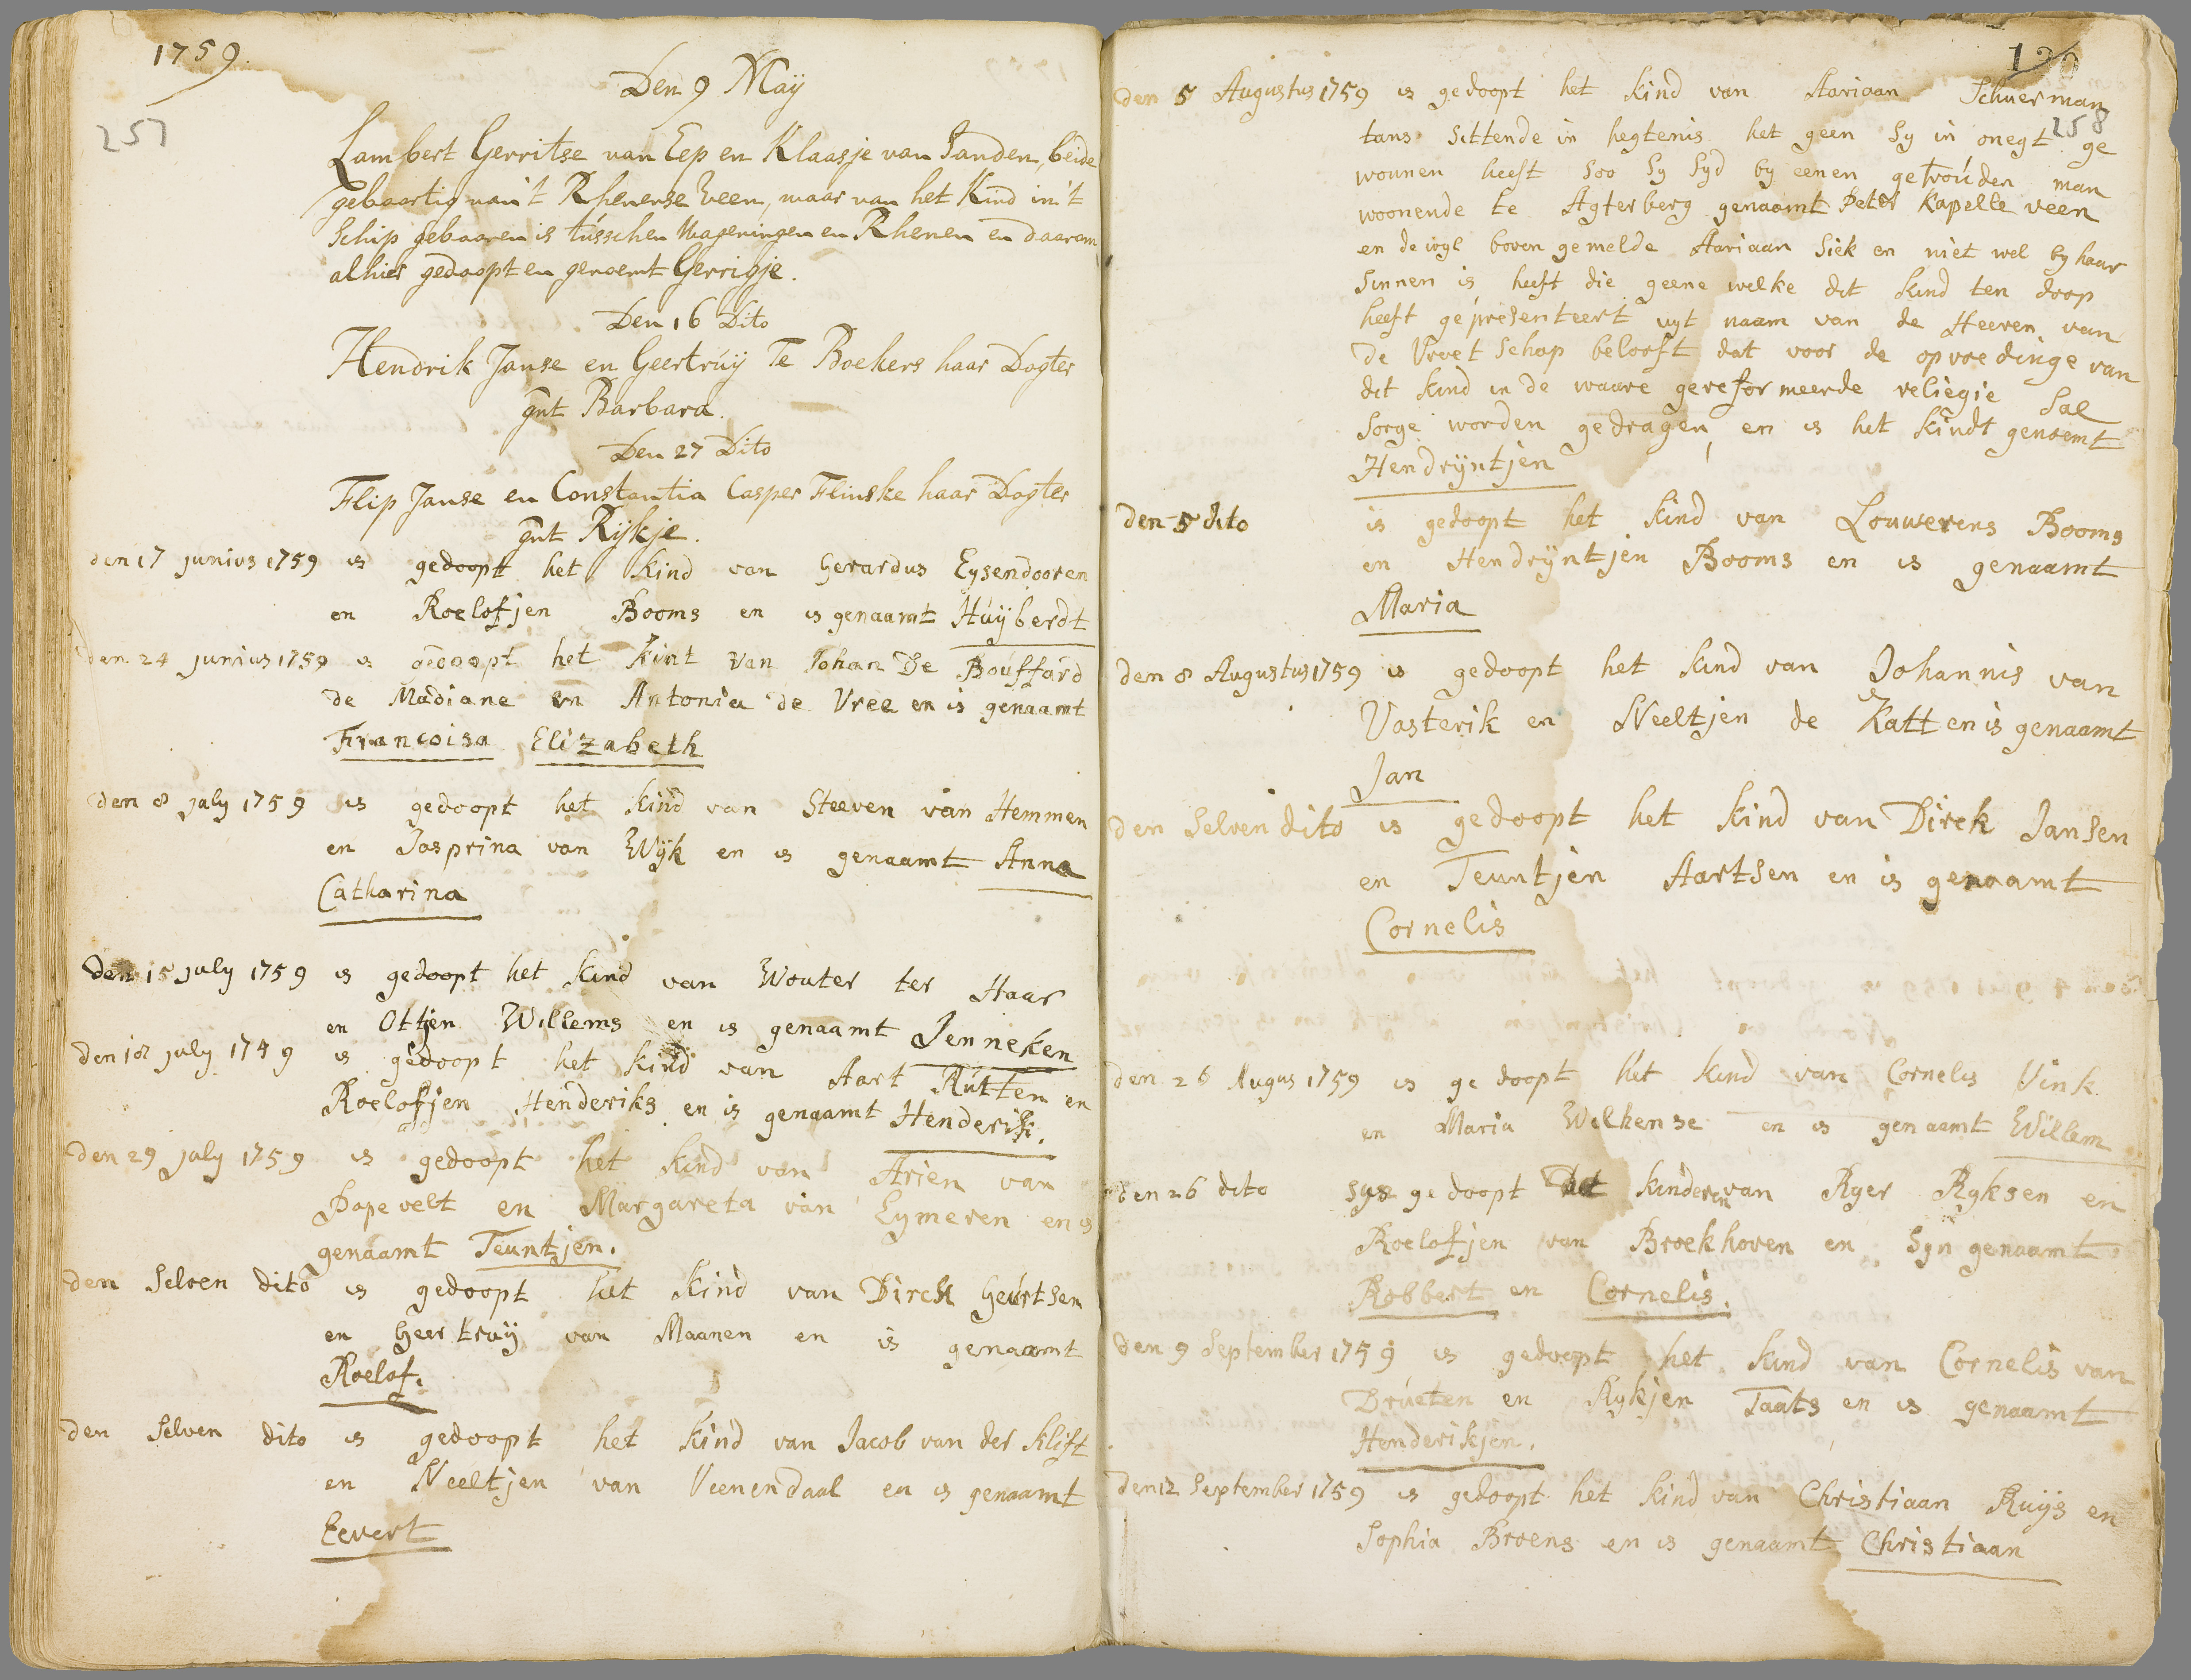 1759.
257
Den 9 Maÿ
Lambert Gerritse van Eep en Klaasje van Sanden, beide
gebaartig van 't Rhenense veen, waar van het Kind in 't
Schip gebooren is tússchen Wageningen en Rhenen en daarom
alhier gedoopt en genoemt Gerrigje.
Den 16 Dito
Hendrik Janse en Geertrúÿ Te Boekers haar Dogter
gnt Barbara.
Den 27 Dito
Flip Janse en Constantia Casper Flinske haar Dogter
gnt Rijkje.
den 17 junius 1759 is gedoopt het Kind van Gerardus Eysendooren
en Roelofjen Booms en is genaamt Húÿberdt
den 24 junius 1759 is gedoopt het Kint van Johan De Bouffard
de Madiane en Antonia de Vree en is genaamt
Francoisa Elizabeth
den 8 july 1759 is gedoopt het kind van Steeven van Hemmen
en Jasprina van Wÿk en is genaamt Anna
Catharina
den 15 july 1759 is gedoopt het Kind van Wouter ter Haar
en Ottjen Willems en is genaamt Jenneken
den 18 july 1749 is gedoopt het kind van Aart Rútten en
Roelofjen Henderiks en is genaamt Henderik.
den 29 july 1759 is gedoopt het kind van Arien van
Papevelt en Margareta van Eymeren en is
genaamt Teuntjen.
den Selven dito is gedoopt het kind van Dirck Geúrtsen
en Geertruÿ van Maanen en is genaamt
Roelof.
den Selven dito is gedoopt het kind van Jacob van der Klift
en Neeltjen van Veenendaal en is genaamt
Eevert
120
258
den 5 Augustus 1759 is gedoopt het kind van Aariaan Schuerman
tans Sittende in hegtenis het geen Sy in onegt ge
wonnen heeft Soo Sy Syd by eenen getroúden man
woonende te Agterberg genaamt Peter Kapelle veen
en dewyl boven gemelde Aariaan Siek en niet wel by haar
Sinnen is heeft die geene welke dit kind ten doop
heeft gepresenteert uyt naam van de Heeren van
de Vroetschap belooft dat voor de opvoedinge van
dit kind in de waare gereformeerde religie Sal
Sorge worden gedragen, en is het kindt genoemt
Hendrÿntjen
den 5 dito is gedoopt het kind van Louwerens Booms
en Hendrÿntjen Booms en is genaamt
Maria
den 8 Augustus 1759 is gedoopt het kind van Johannis van
Vasterik en Neeltjen de Katt en is genaamt
Jan
den Selven dito is gedoopt het kind van Dirck Jansen
en Teuntjen Aartsen en is genaamt
Cornelis
den 26 Augus 1759 is gedoopt het kind van Cornelis Vink
en Maria Wilkense en is genaamt Willem
den 26 dito syn gedoopt kinderen van Ryer Ryksen en
Roelofjen van Broekhoven en Syn genaamt
Robbert en Cornelis.
den 9 September 1759 is gedoopt het kind van Cornelis van
Drúeten en Rykjen Taats en is genaamt
Henderikjen.
den 12 September 1759 is gedoopt het kind van Christiaan Ruÿs en
Sophia Broens en is genaamt Christiaan